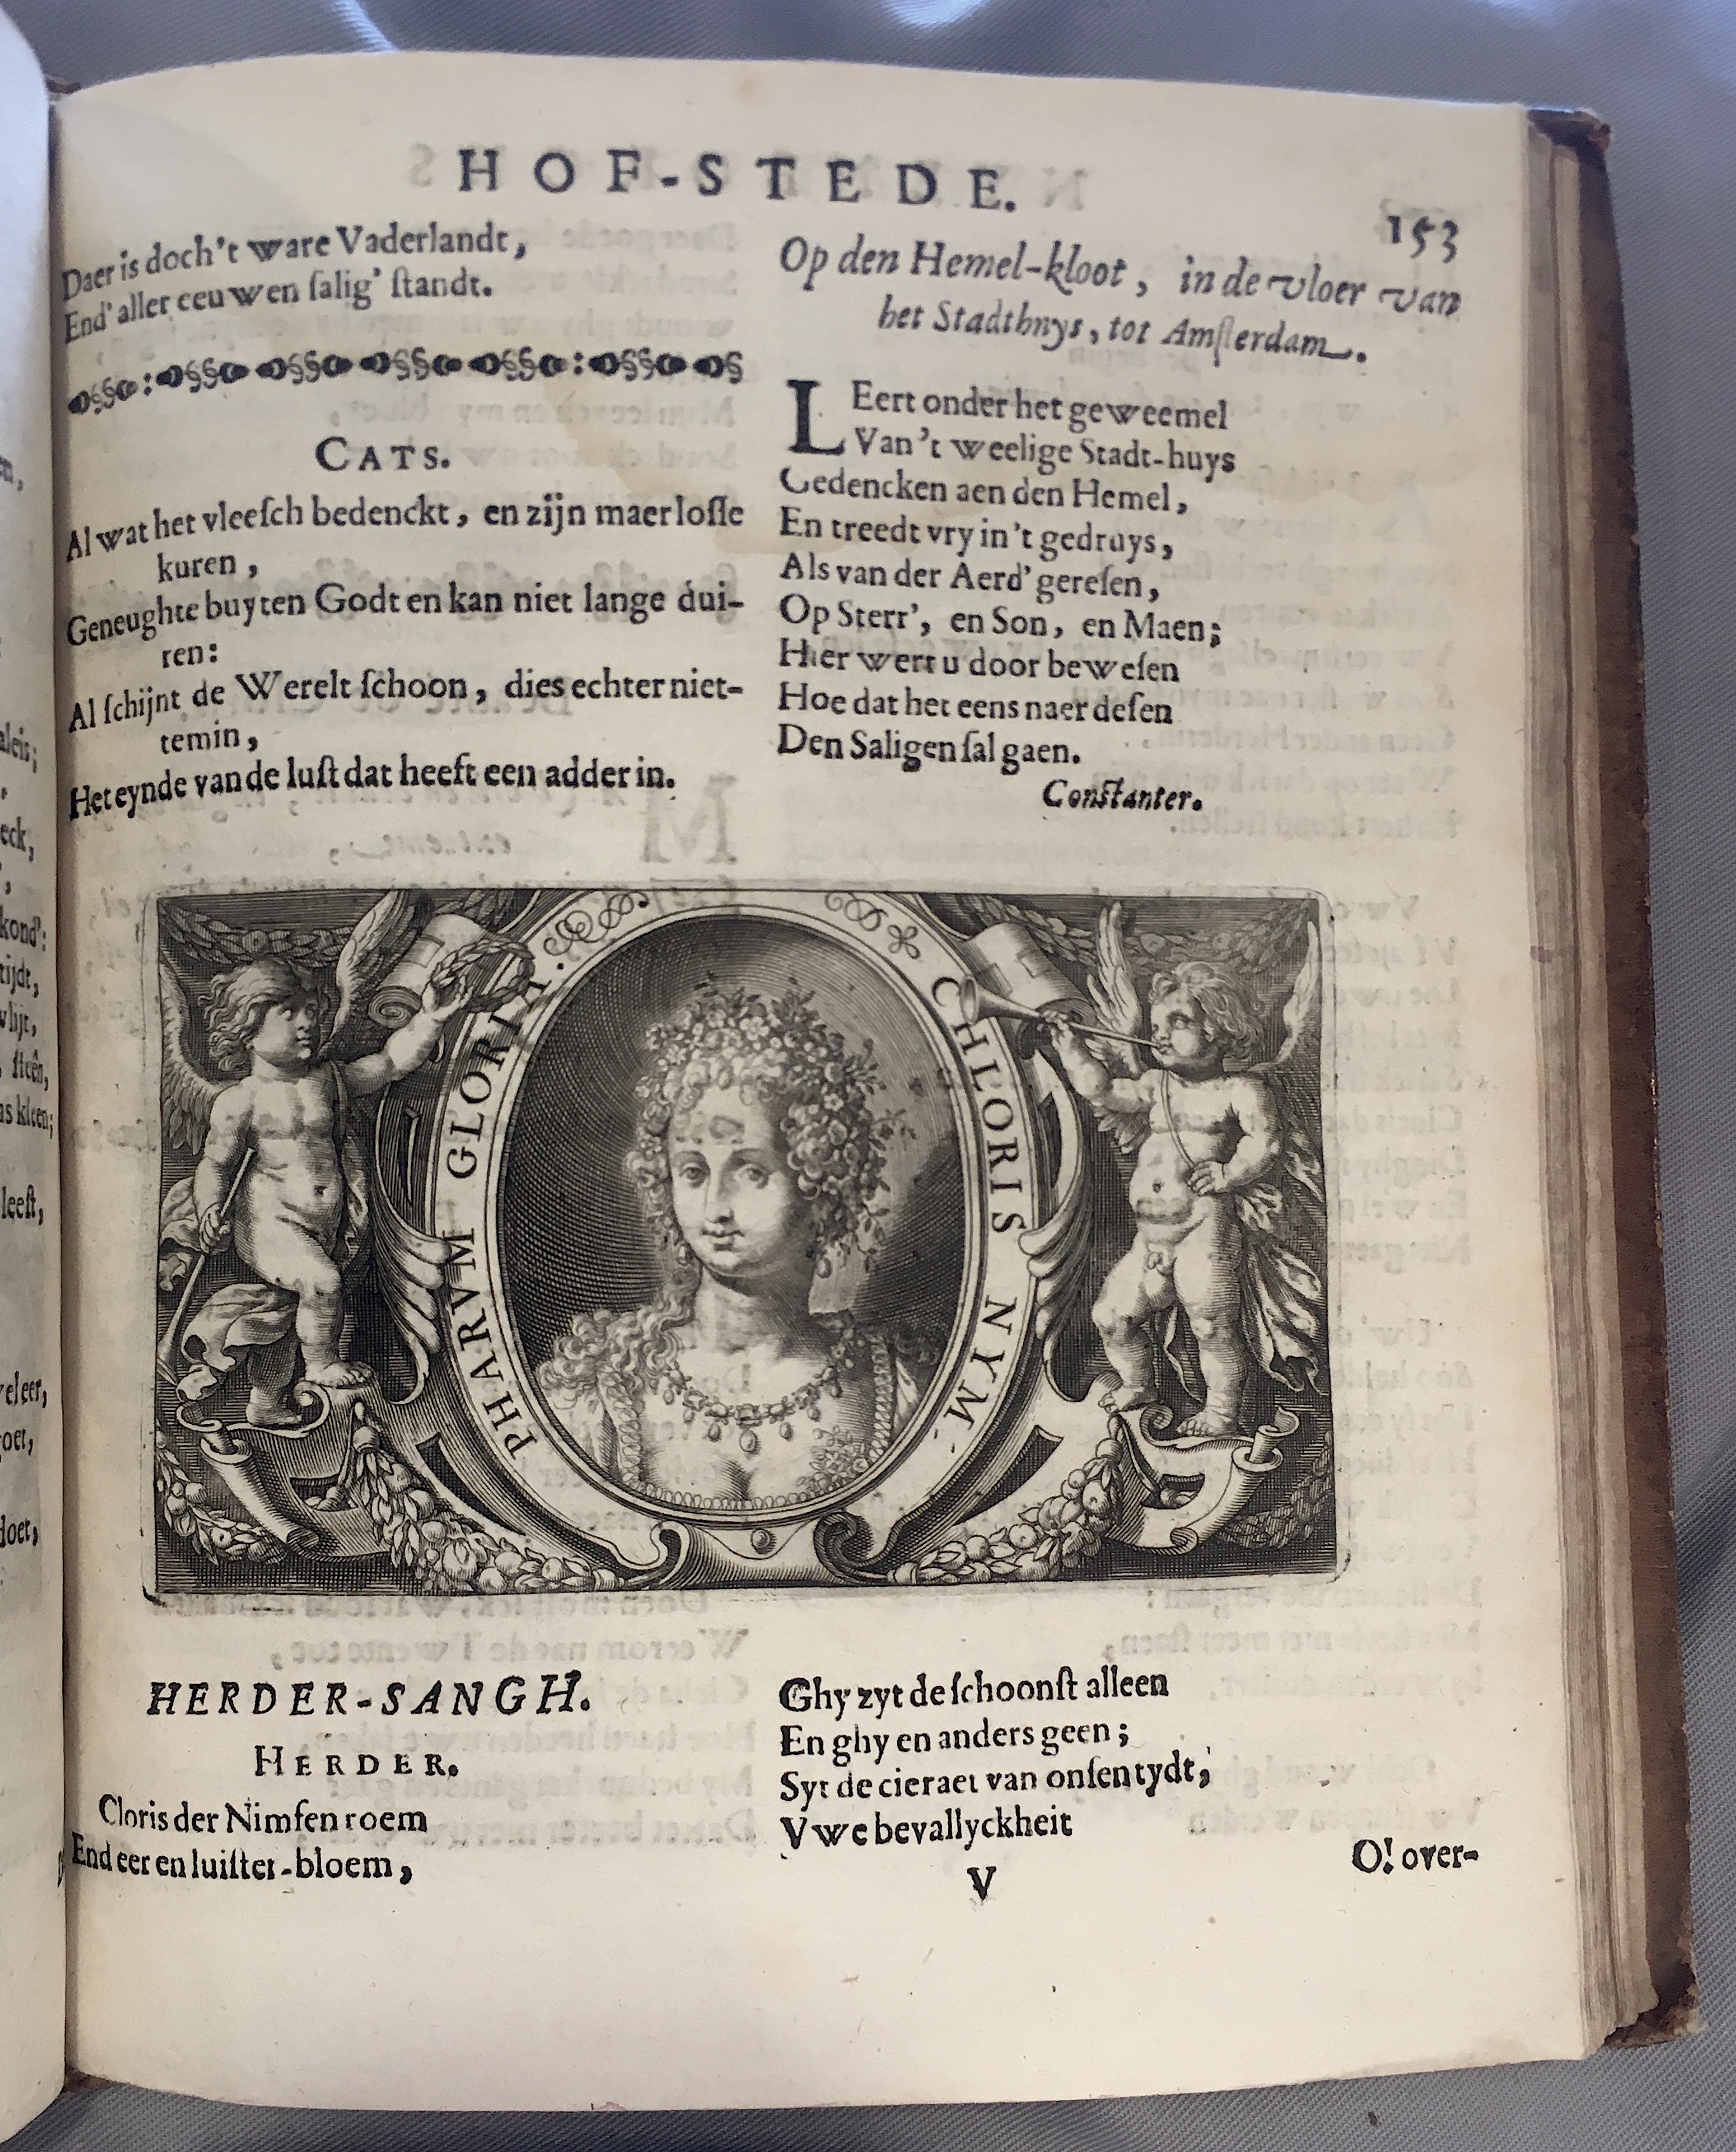 HOF-STEDE.
153
Daer is doch't ware Vaderlandt,
End' aller eeuwen ſalig' ſtandt.
CATS.
Al wat het vleeſch bedenckt, en zijn maer loſſe
kuren,
Geneughte buyten Godt en kan niet lange dui-
ren:
Al ſchijnt de Werelt ſchoon, dies echter niet-
temin,
Het eynde van de luſt dat heeft een adder in.
Op den Hemel-kloot, in de vloer van
het Stadthnys, tot Amſterdam.
LEert onder het geweemel
Van't weelige Stadt-huys
Gedencken aen den Hemel,
En treedt vry in't gedruys,
Als van der Aerd' gereſen,
Op Sterr', en Son, en Maen;
Hier wert u door beweſen
Hoe dat het eens naer deſen
Den Saligen ſal gaen.
Conſtanter.
CHLORIS NYM-
PHARVM GLORIA.
HERDER-SANGH.
HERDER.
Cloris der Nimfen roem
End eer en luiſter-bloem,
Ghy zyt de ſchoonſt alleen
En ghy en anders geen;
Syt de cieraet van onſen tydt,
Vwe bevallyckheit
V
O! over-
en,
aleis;
eck,
kond':
tijdt,
vlijt,
ſteên,
as kleen;
leeſt,
veleer,
oet,
doet,